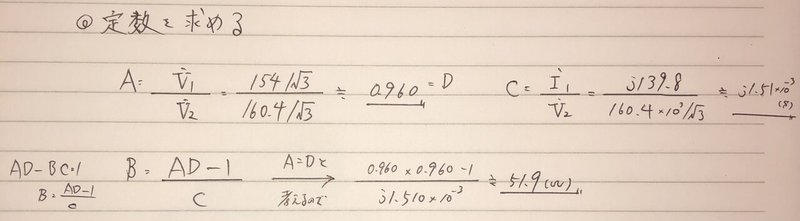 ◎ 定数を求める
A = V̇₁/V̇₂ = (154/√3)/(160.4/√3) ≒ 0.960 = D
C = İ₁/V̇₂ = j139.8/(160.4×10³/√3) ≒ j1.51×10⁻³ (S)
AD-BC=1 B = (AD-1)/C A=Dと考えるので → (0.960×0.960-1)/(j1.510×10⁻³) ≒ 51.9(Ω)
B = (AD-1)/C